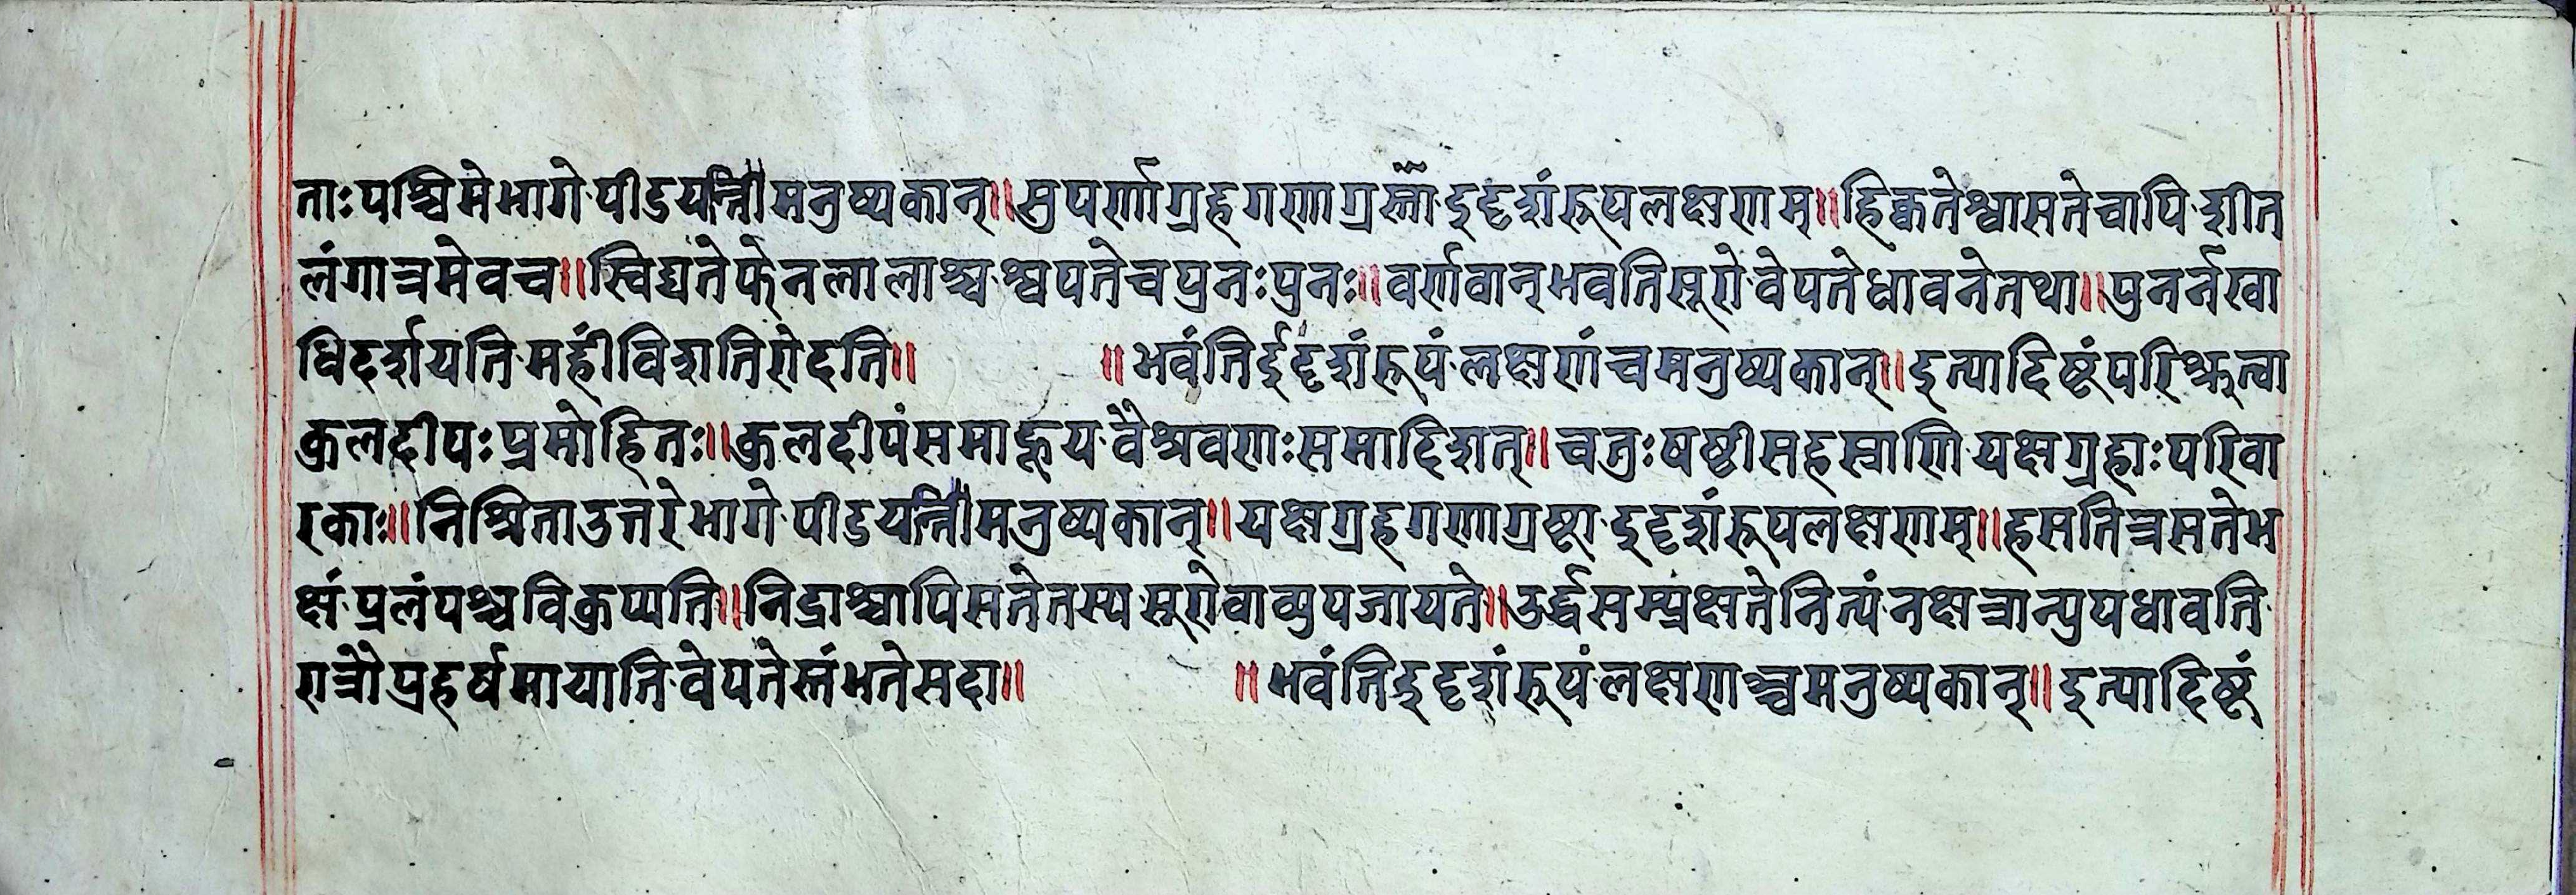 ताः पश्चिमे भागे पीडयन्तीमनुष्यकान्॥ सुपर्णाग्रहगणाग्रस्ता इदृशंरूपलक्षणम्॥ हिक्वते श्वासते चापि शीत
लं गात्रमेवच॥ स्विद्यते फेनलालाश्च श्वपते च पुनः पुनः॥ वर्णवान् भवति सूरो वेपते धावने तथा॥ पुनर्नखा
धिदर्शयति महीं विदशति रोदति॥ ॥ भवंति ईदृशंरूपं लक्षणंच मनुष्यकान्॥ इत्यादिष्टं परिश्रुत्वा
कुलदीपः प्रमोहितः॥ कुलदीपं समाहूय वैश्रवणः समादिशत्॥ चतुःषष्टीसहस्राणि यक्षग्रहाः परिवा
रकाः॥ निश्रिता उत्तरे भागे पीडयन्तीमनुष्यकान्॥ यक्षग्रहगणाग्रष्टा इदृशंरूपलक्षणम्॥ हसति त्रसते भ
क्षं प्रलंपश्च विकुप्यति॥ निद्राश्चापि सतेतस्य सूरोवाव्युपजायते॥ उर्द्धसम्प्रक्षते नित्यं नक्षत्रान्युपधावति
रात्रौ प्रहर्षमायाति वेपते स्तंभते सदा॥ ॥ भवंति इदृशंरूपं लक्षणाञ्चमनुष्यकान्॥ इत्यादिष्टं